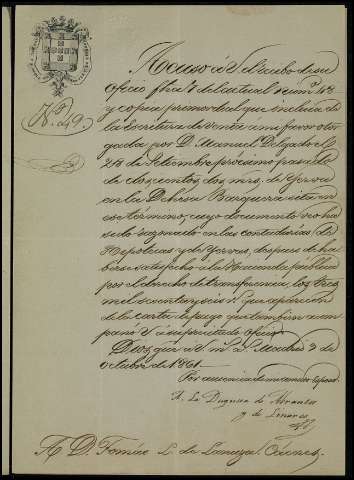 Nº 49.
Acuso á V. el recibo de su
oficio fha 1º del actual num.º 48
y copia primordial que incluia de
la escritura de venta á mi favor otor
gada por D. Manuel Delgado el
28 de Setiembre procsimo pasado
de doscientos dos mrs. de Yerva
en la Dehesa Barquera sita en
ese término, cuyo documento no ha
sido razonado en las contadurias de
Hipotecas y de Yervas, despues de ha
ber satisfecho á la Hacienda pública
por el derecho de transferencia, los tres
mil sesenta y seis que aparecen
de la carta de pago que tambien acom
pañó V. á su precitado oficio.
Dios gue á V. m. a. Madrid 3 de
octubre de 1861.
Por ausencia de mi amado Esposo
A. La Duquesa de Abrantes
y de Linares
A D. Tomás de Cáceres.